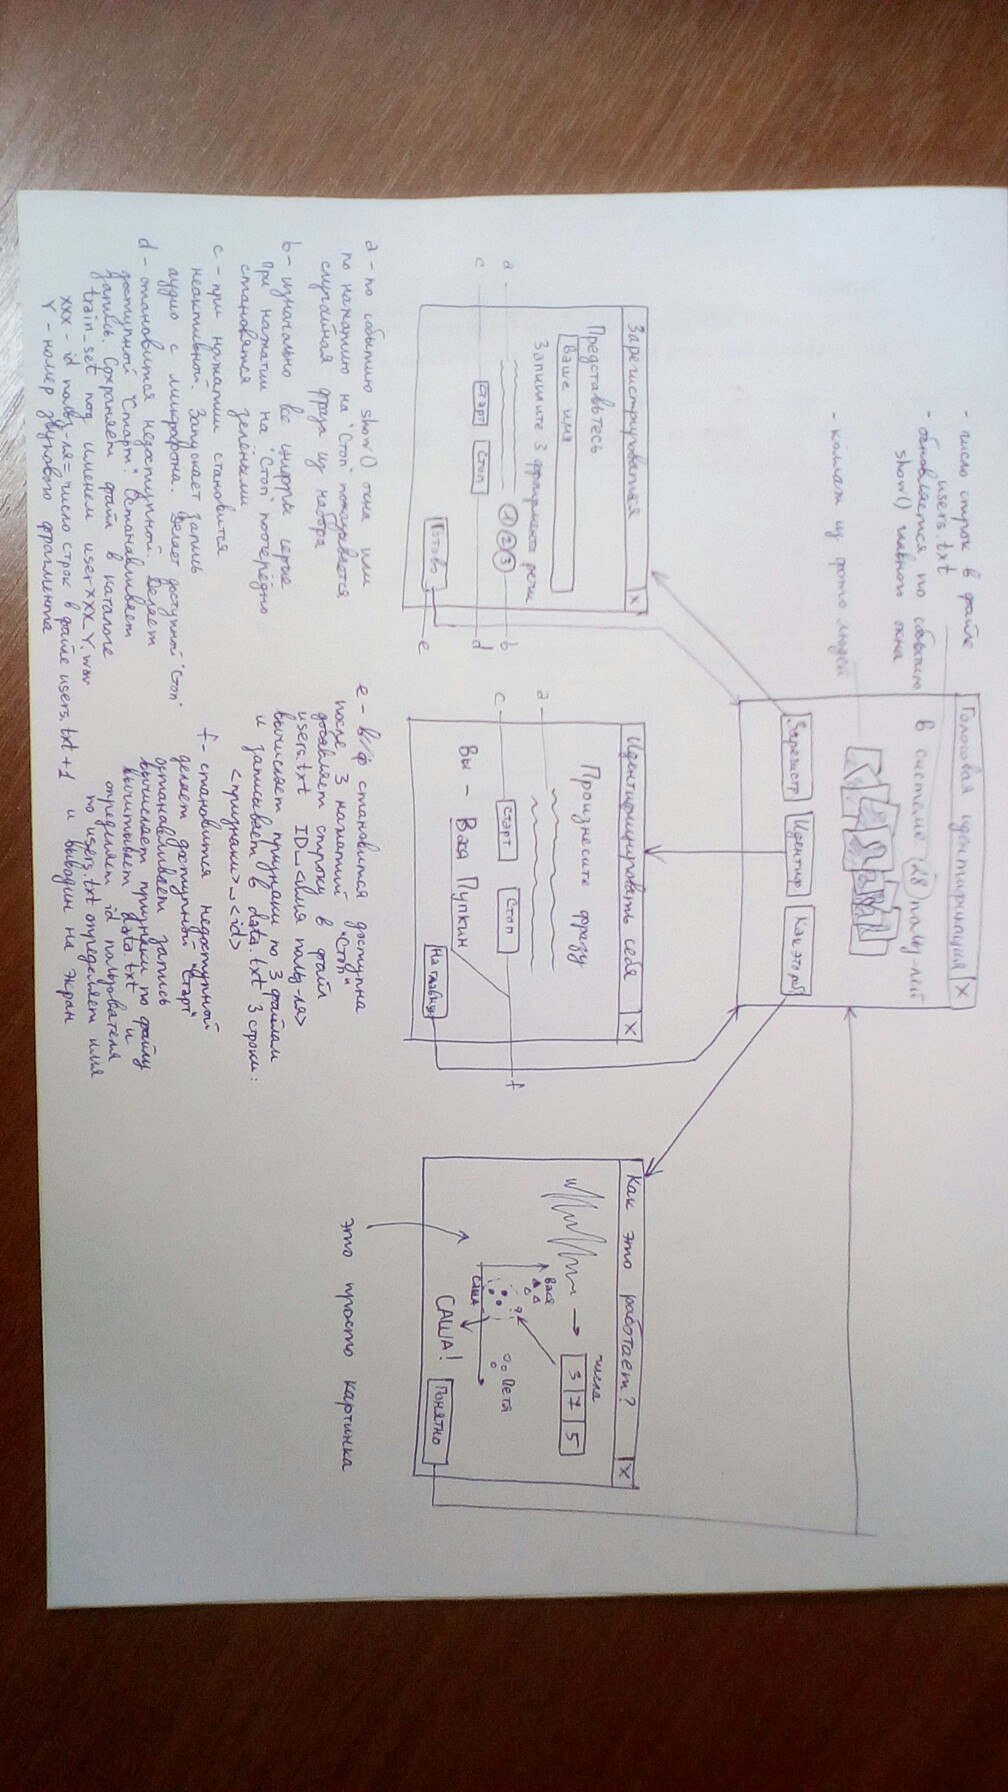 - число строк в файле
users.txt
- обновляется по событию
show() главного окна
- коллаж из фото людей
Голосовая идентификация X
в системе 28 польз-лей
Зарегистр Идентиф Как это раб
Зарегистрироваться X
Представьтесь
Ваше имя
Запишите 3 фрагмента речи
a 1 2 3 b
c Старт Стоп d
Готово e
Идентифицировать себя X
Произнесите фразу
a
c Старт Стоп f
Вы - Вася Пупкин
На главную
Как это работает?
X
числа
3 7 5
Вася
?
Петя
Саша
САША!
Понятно
это просто картинка
a - по событию show() окна или
по нажатию на "Стоп" показывается
случайная фраза из набора
b - изначально все цифры серые
При нажатии на "Стоп" поочерёдно
становятся зелёными
c - при нажатии становится
неактивной. Запускает запись
аудио с микрофона. Делает доступной "Стоп"
d - становится недоступной. Делает
доступной "Старт". Останавливает
запись. Сохраняет файл в каталоге
train_set под именем userXXX_Y.wav
XXX - id польз-ля = число строк в файле users.txt + 1
Y - номер звукового фрагмента
e - становится доступна
после 3 нажатий "Стоп"
добавляет строку в файл
users.txt ID_<имя польз-ля>
вычисляет признаки по 3 файлам
и записывает в data.txt 3 строки:
<признаки>_<id>
f - становится недоступной
делает доступной "Старт"
останавливает запись
вычисляет признаки по файлу
вычитывает data.txt и
определяем id пользователя
по users.txt определяем имя
и выводим на экран